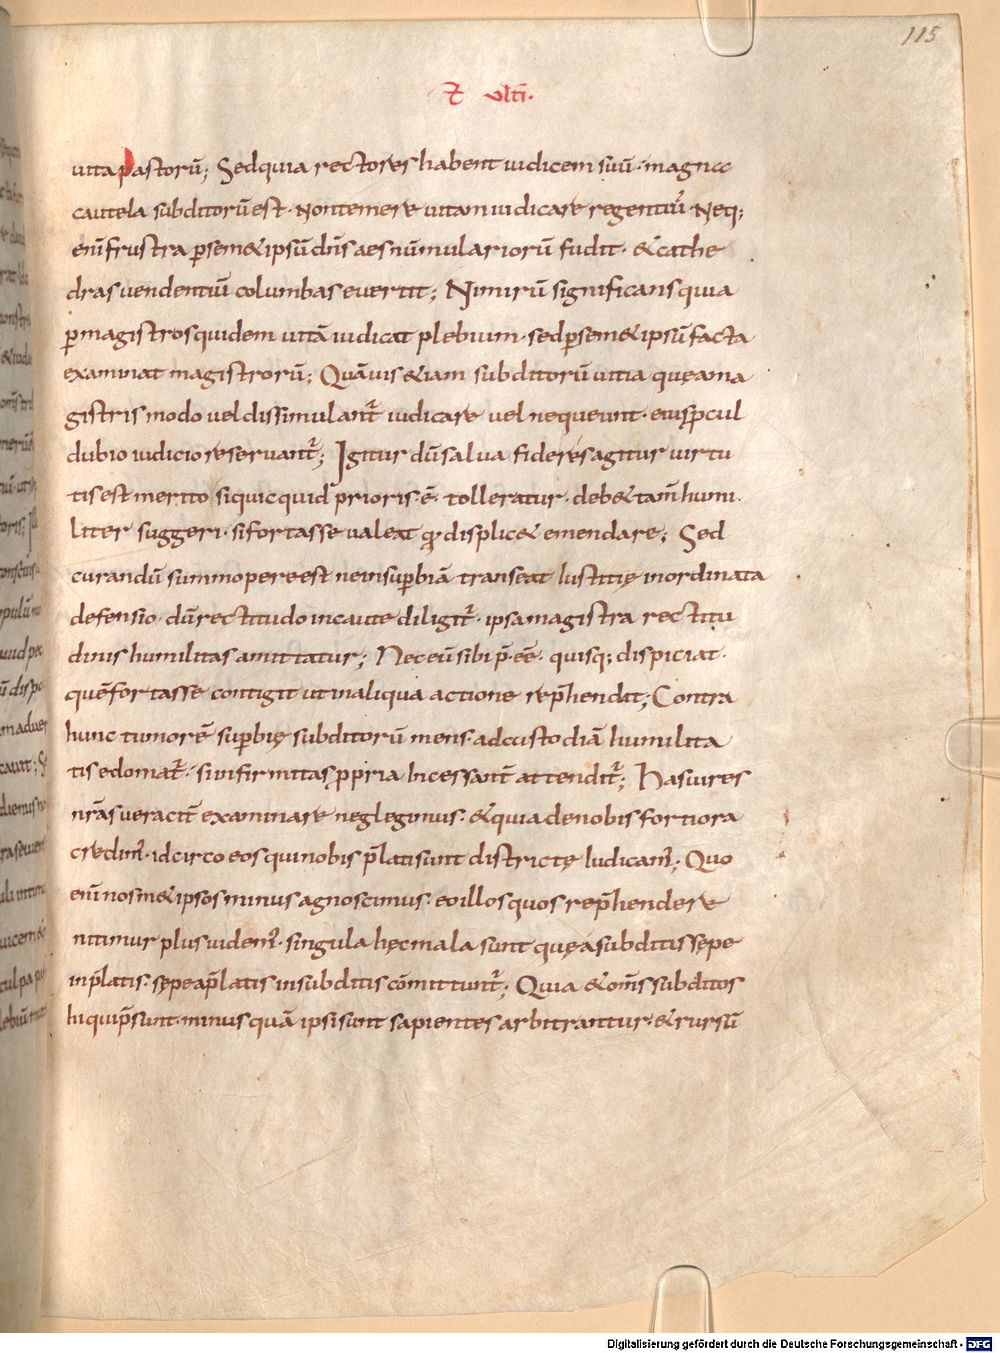 115
⁊ ultī·
uita pastorū; Sed quia rectores habent iudicem suū · magna
cautela subditorū est · Non temere uitam iudicare regentiū· Neq;
enī frustra ꝑ sem&ipsū dn̄s aes nūmulariorū fudit · & cathe
dras uendentiū columbas euertit; Nimirū significans quia
ꝑ magistros quidem uitā iudicat plebium · sed ꝑ sem&ipsū facta
examinat magistrorū; Quāuis &iam subditorū uitia quę a ma
gistris modo uel dissimulant᷑ iudicare uel nequeunt · eius ꝓcul
dubio iudicio reseruant᷑; Igitur dū salua fide res agitur uirtu
tis est merito siquicquid prioris ē · tolleratur · deb& tam̄ humi
liter suggeri · si fortasse ualeat qđ displic& emendare; Sed
curandū summopere est ne in suꝑbiā transeat Iustitię inordinata
defensio · dū rectitudo incaute diligit᷑ · ipsa magistra rectitu
dinis humilitas amittatur; Nec eū sibi p̄ eē · quisq; dispiciat ·
quē fortasse contigit ut in aliqua actione rep̄hendat; Contra
hunc tumorē suꝑbię subditorū mens · ad custodiā humilita
tis edomat᷑ · si infirmitas ꝓpria Incessant̄ attendit᷑; Nā uires
nr̄as ueracit̄ examinare neglegimus · & quia de nobis fortiora
credim᷒ · idcirco eos qui nobis p̄lati sunt districtę Iudicam᷒; Quo
enī nosm&ipsos minus agnoscimus · eo illos quos rep̄hendere
nitimur plus uidem᷒ · singula hęc mala sunt quę a subditis sępe
in p̄latis · sępe a p̄latis in subditis cōmittunt᷑; Quia & om̄s subditos
hi qui p̄sunt · minus quā ipsi sunt sapientes arbitrantur · & rursū
Digitalisierung gefördert durch die Deutsche Forschungsgemeinschaft - DFG